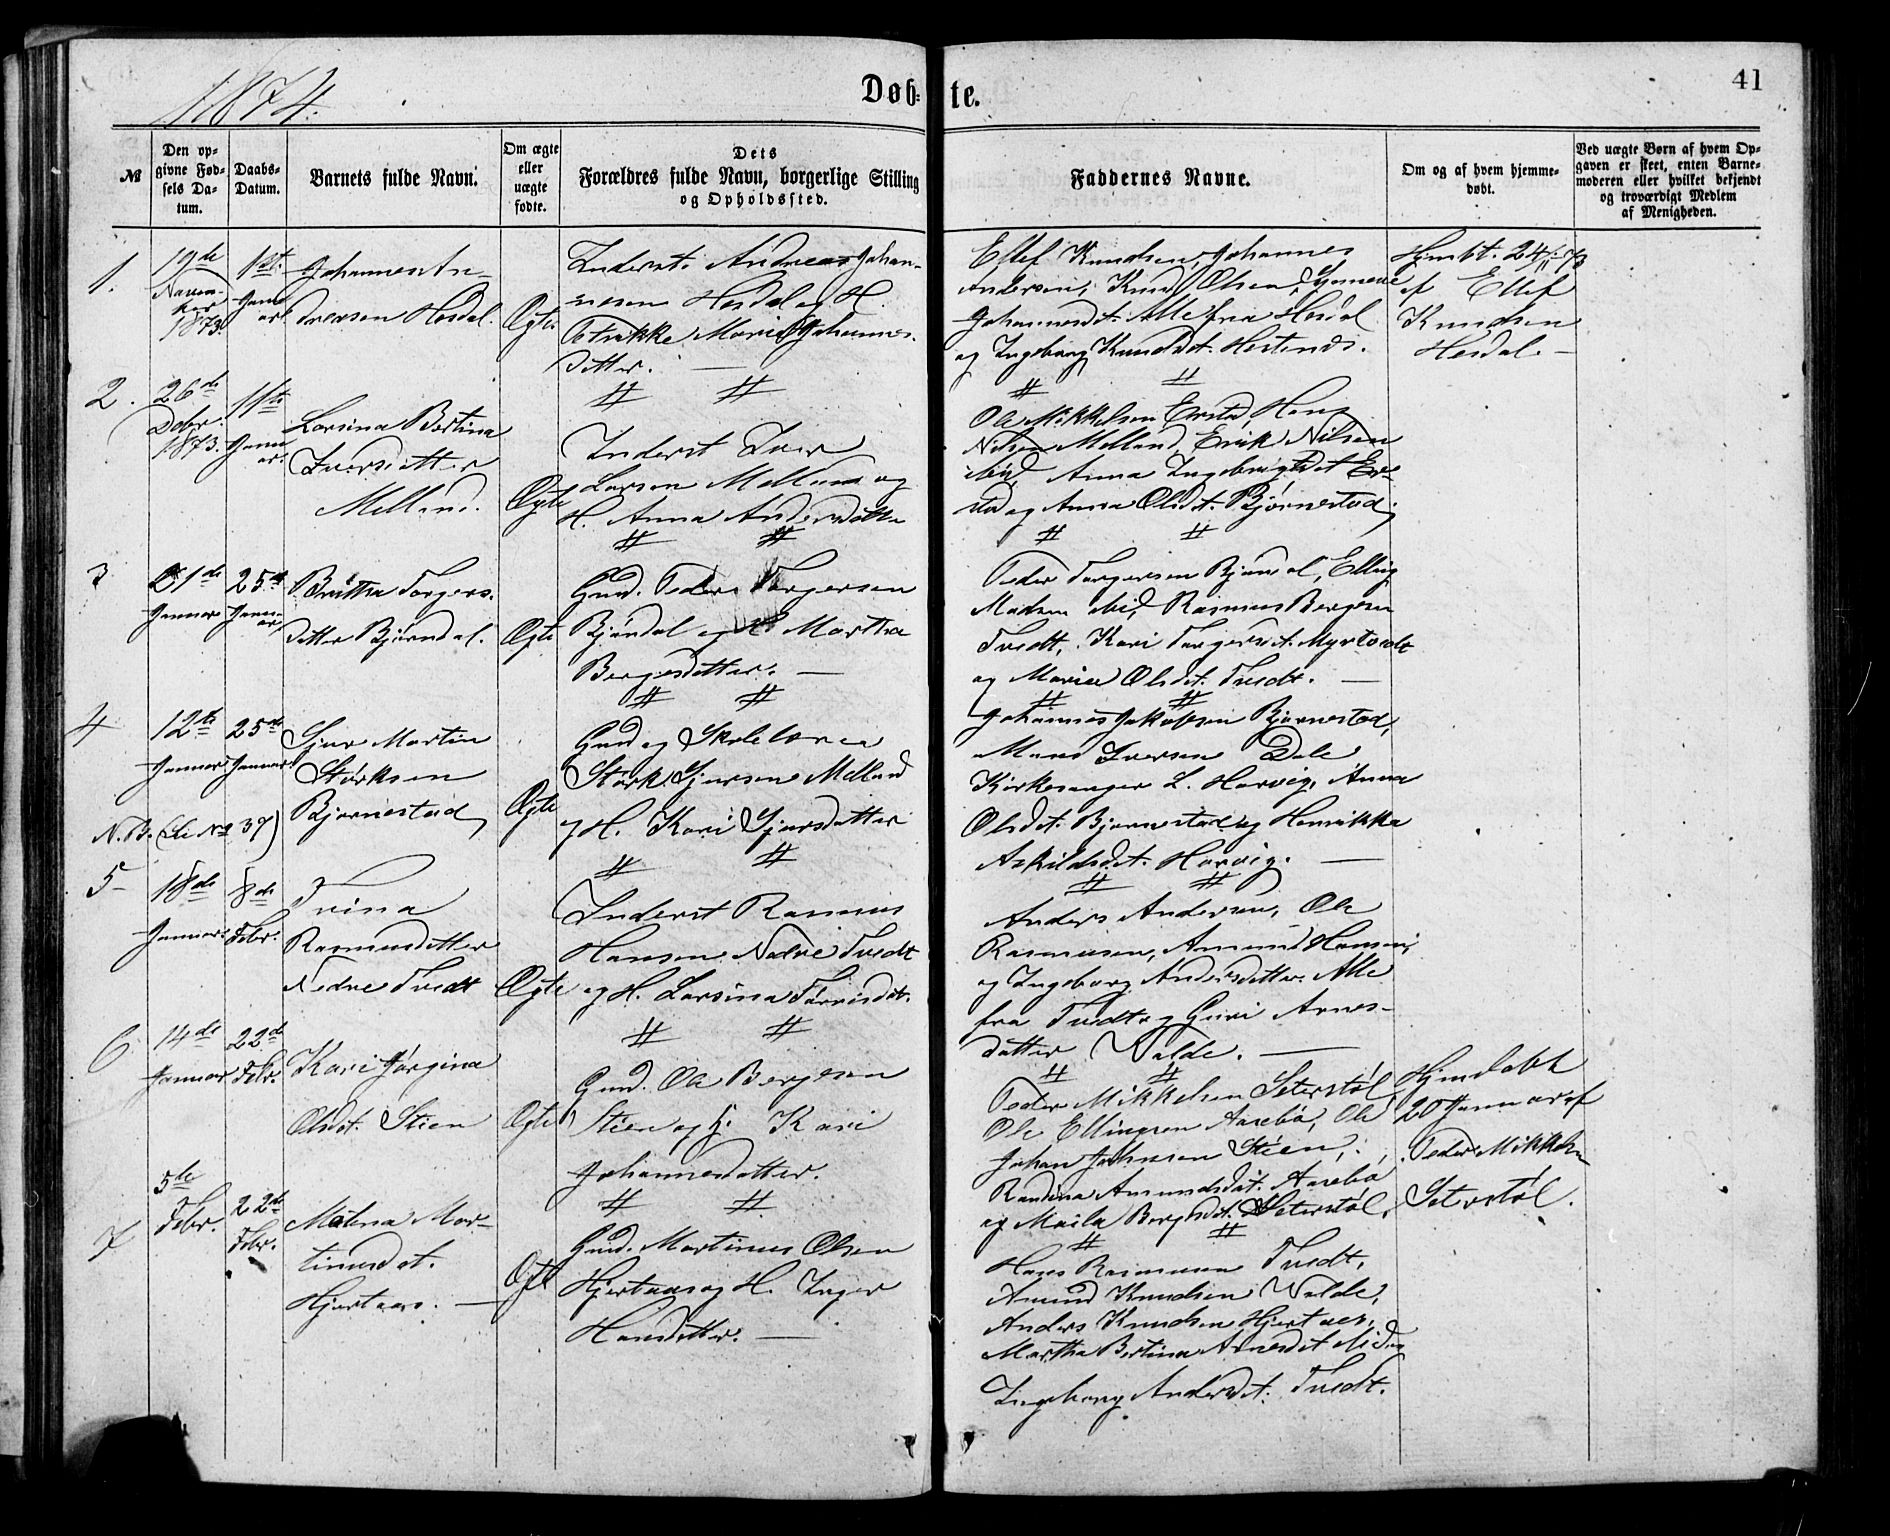 1874.
Døb-
te.
41
№
Den op-
givne Fød-
sels Da-
tum.
Daabs-
Datum.
Barnets fulde Navn.
Om ægte
eller
uægte
fødte.
Dets
Forældres fulde Navn, borgerlige Stilling
og Opholdssted.
Faddernes Navne.
Om og af hvem hjemme-
døbt.
Ved uægte Børn af hvem Op-
gaven er skeet, enten Barne-
moderen eller hvilket bekjendt
og troværdigt Medlem
af Menigheden.
1.
19de
Novem-
ber
1873.
1ste
Janu-
ar
Johannes An-
dreasen Hesdal.
Ægte
Inderst. Andreas Johan-
nesen Hesdal og H.
Marie Johannes-
datter. —
Ellef Knudsen, Johannes
Andersen, Knud Olsen, Synneve
Johannesdt. Alle fra Hesdal
og Ingeborg Knudsdt. Hestenes.
Hjmbt. 24/11 73
af Ellef
Knudsen
Hesdal. —
2.
26de
Debr.
1873.
11te
Janu-
ar.
Larsina Bertina
Iversdatter
Melland.
Ægte
Inderst Iver
Larsen Melland og
H. Anna Andersdatter
Ole Mikkelsen Erstad, Hans
Nilsen Melland, Erik Nilsen
ibid, Anna Ingebrigtsdt Er-
stad og Anna Olsdt. Bjørnestad,
3
21de
Januar
25de
Janu-
ar
Brithe Torgers-
datter Bjørndal.
Ægte
Gmd. Peder Torgersen
Bjøndal og H Martha
Bergesdatter. —
Peder Torgersen Bjøndal, Elling
Madsen ibid, Rasmus Bergesen
Tvedt, Kari Torgersdt. Myrtvedt
og Marie Olsdt. Tvedt. —
4
12te
Januar
25de
Januar
Sjur Martin
Størksen
Bjørnestad,
Ægte
Gmd og Skolelærer
Størk Sjursen Melland
og H. Kari Sjursdatter
Johannes Jakobsen Bjørnestad,
Mons Iversen Dale,
Kirkesanger L. Harvig, Anna
Olsdt. Bjørnestad og Henrikka
Askildsdt. Harvig. —
N.B. (Se No 37)
5
18de
Januar
8de
Febr.
Trina
Rasmusdatter
Nedre Tvedt
Ægte
Inderst Rasmus
Hansen Nedre Tvedt
og H. Larsina Tørrisdt.
Anders Andersen, Ole
Rasmusen, Amund Hansen,
og Ingeborg Andersdatter. Alle
fra Tvedt og Guri Arnes-
datter Walde. —
6
14de
Januar
22de
Febr.
Kari Jørgina
Olsdt. Stien
Ægte
Gmd. Ole Bergesen
Stien og H. Kari
Johannesdatter.
Peder Mikkelsen Seterstøl,
Ole Ellingsen Aasebø, Ole
Johan Johnsen Stien,
Randina Amundsdt. Aasebø
og Maila Bergesdt. Seterstøl.
Hjemdøbt
20 Januar af
Peder Mikkelsen
Seterstøl.
7
5de
Febr.
22de
Febr.
Malena Mar-
tinusdt.
Hjertaas. —
Ægte
Gmd. Martinus Olsen
Hjertaas og H. Inger
Hansdatter. —
Hans Rasmusen Tvedt,
Amund Knudsen Walde,
Anders Knudsen Hjertaas,
Martha Bertina Arnesdt
Ingeborg Andersdt. Tvedt.